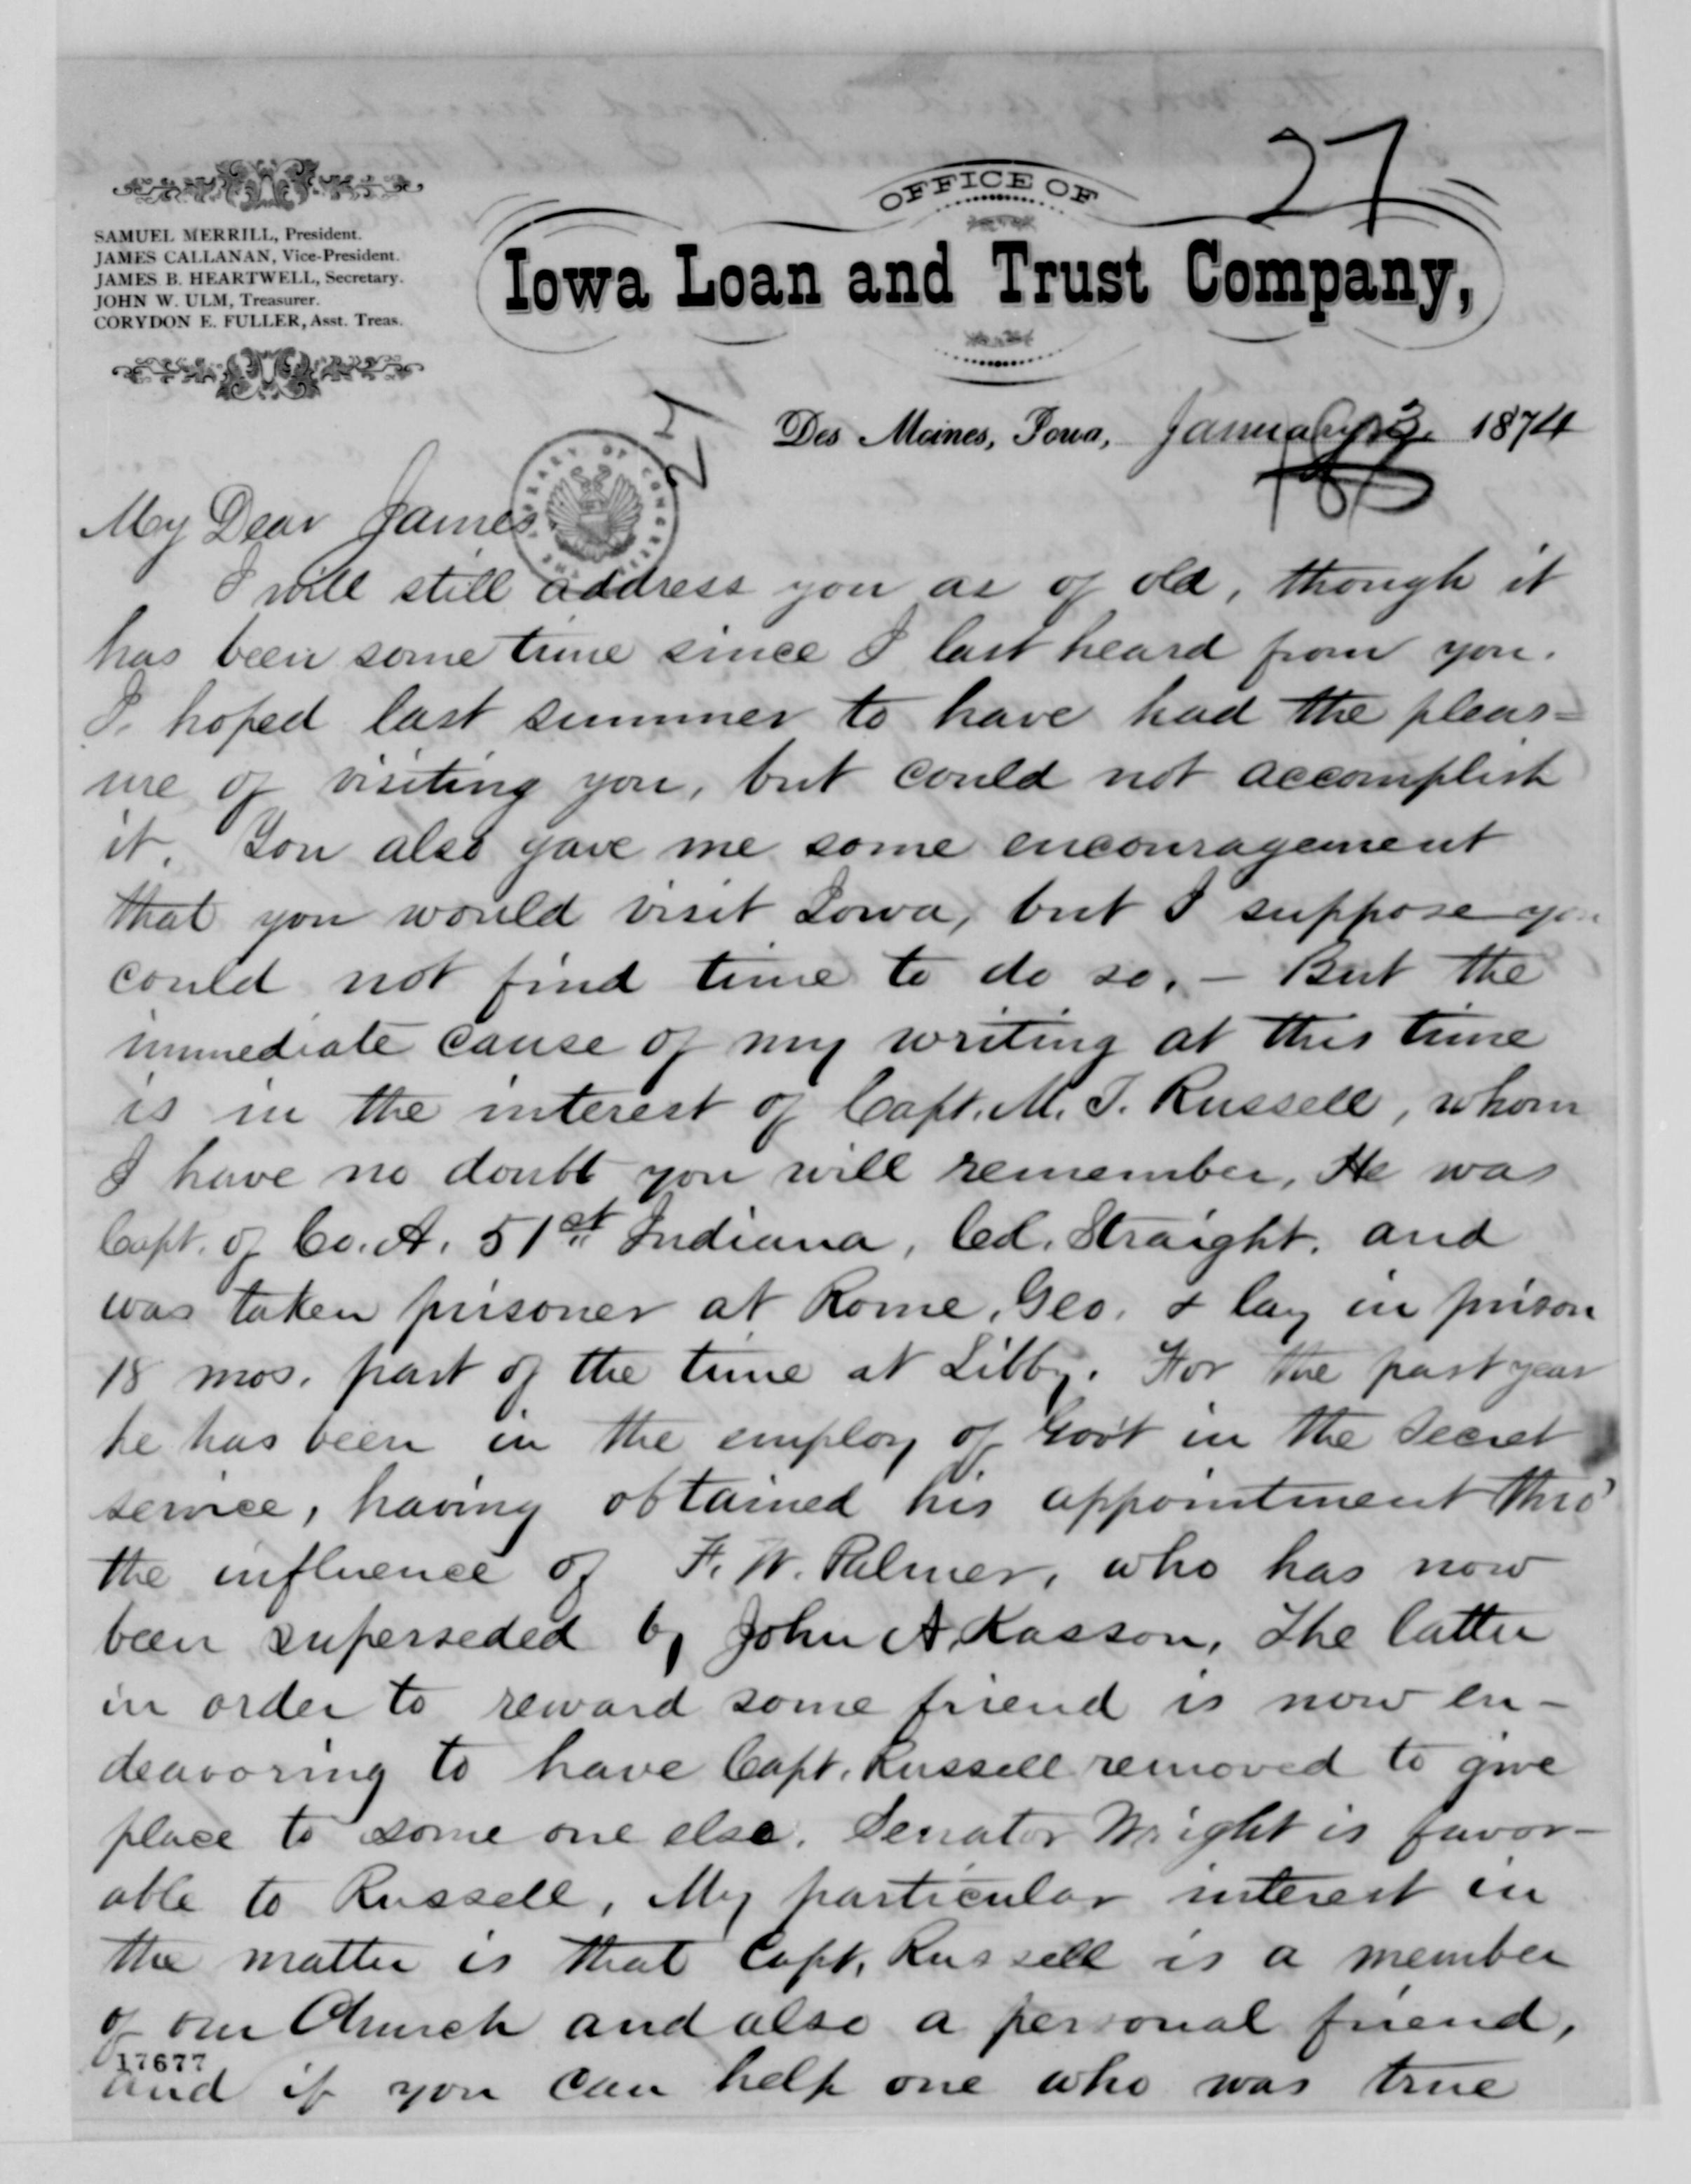 27
OFFICE OF
Iowa Loan and Trust Company,
SAMUEL MERRILL, President.
JAMES CALLANAN, Vice-President.
JAMES B. HEARTWELL, Secretary.
JOHN W. ULM, Treasurer.
CORYDON E. FULLER, Asst. Treas.
27
Des Moines, Iowa, January 3 1874
My Dear James
LIBRARY OF CONGRESS
I will still address you as of old, though it
has been some time since I last heard from you.
I hoped last summer to have had the pleas=
ure of visiting you, but could not accomplish
it. You also gave me some encouragement
that you would visit Iowa, but I suppose you
could not find time to do so. — But the
immediate cause of my writing at this time
is in the interest of Capt. M. T. Russell, whom
I have no doubt you will remember. He was
Capt. of Co. A. 51st Indiana, Col. Straight, and
was taken prisoner at Rome, Geo. & lay in prison
18 mos. part of the time at Libby. For the past year
he has been in the employ of Gov't in the Secret
service, having obtained his appointment thro'
the influence of F. W. Palmer, who has now
been superseded by John A. Kasson. The latter
in order to reward some friend is now en-
deavoring to have Capt. Russell removed to give
place to some one else. Senator Wright is favor-
able to Russell. My particular interest in
the matter is that Capt. Russell is a member
of our Church and also a personal friend,
17677
and if you can help one who was true